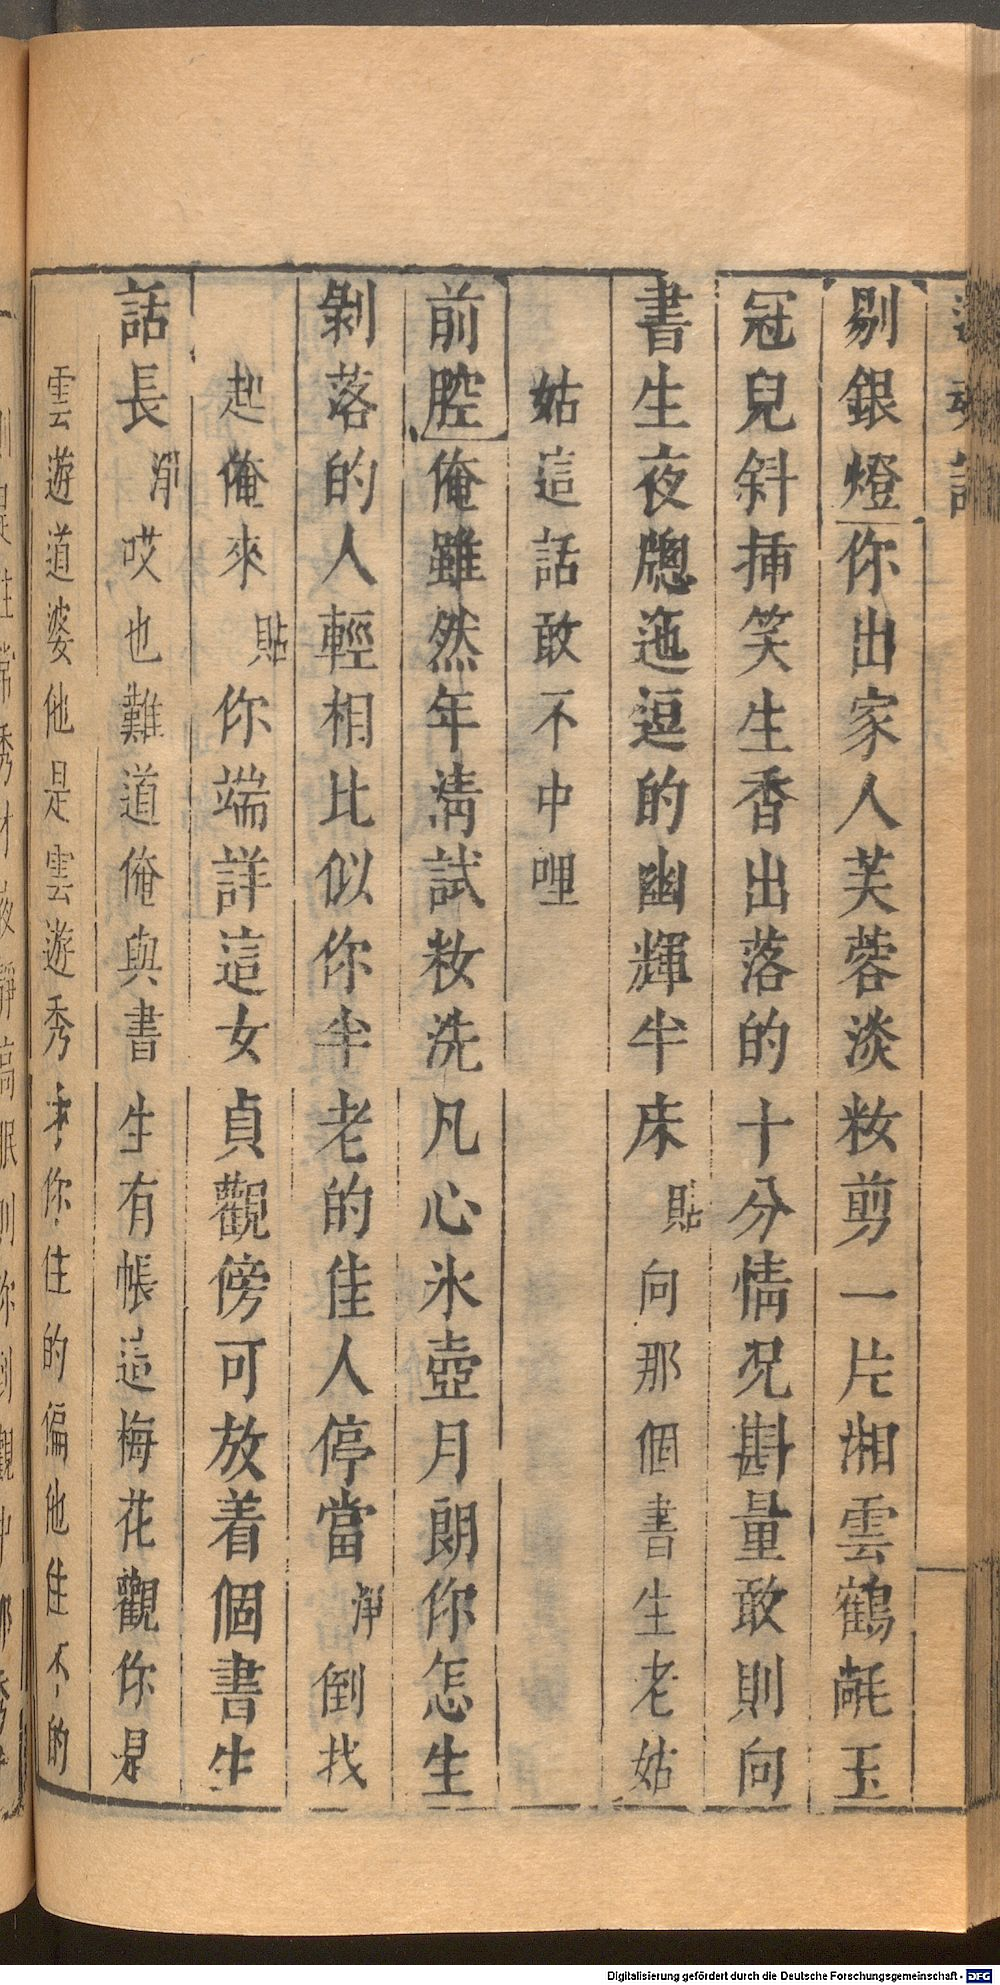 還魂記
剔銀燈你出家人芙蓉淡妝剪一片湘雲鶴氅玉
冠兒斜插笑生香出落的十分情况斟量敢則向
書生夜牕迤逗的幽輝半床貼向那個書生老姑
姑這話敢不中哩
前腔俺雖然年清試妝洗凡心氷壺月朗你怎生
剝落的人輕相比似你半老的佳人停當淨倒找
起俺來貼你端詳這女貞觀傍可放着個書生
話長淨哎也難道俺與書生有帳這梅花觀你是
雲遊道婆他是雲遊秀才你住的偏他住不的
Digitalisierung gefördert durch die Deutsche Forschungsgemeinschaft - DFG